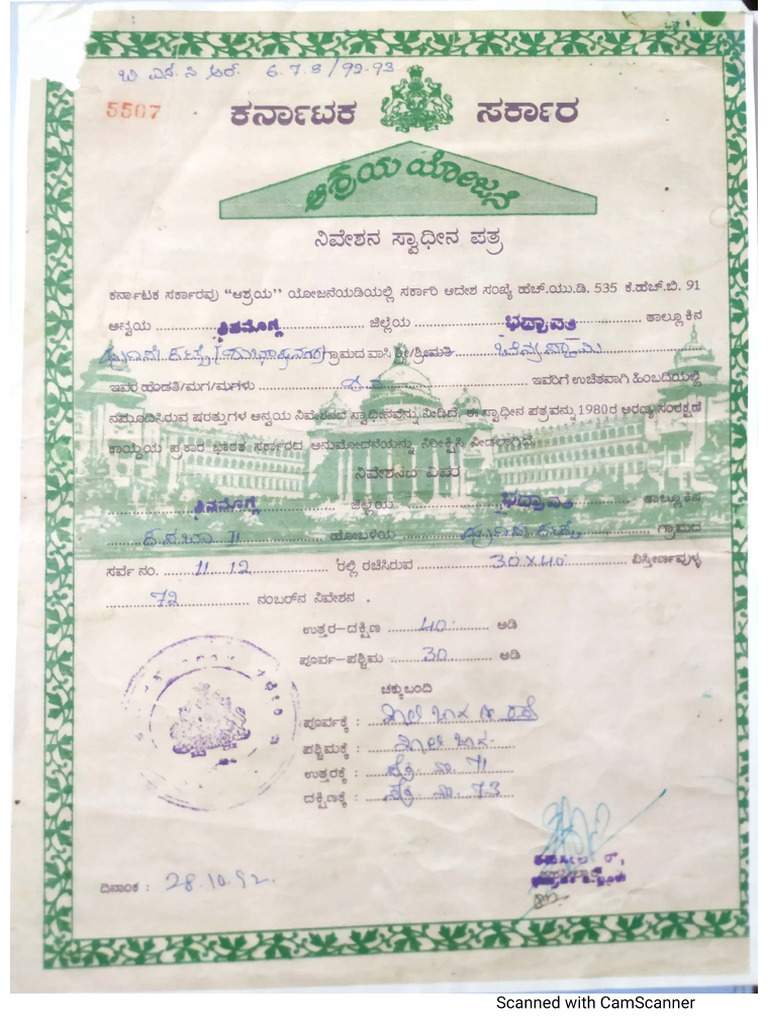 ಬಿ ಎಸ್. ಸಿ. ಆರ್. 6.7.8/92-93
5507
ಕರ್ನಾಟಕ ಸರ್ಕಾರ
ಆಶ್ರಯ ಯೋಜನೆ
ನಿವೇಶನ ಸ್ವಾಧೀನ ಪತ್ರ
ಕರ್ನಾಟಕ ಸರ್ಕಾರವು "ಆಶ್ರಯ" ಯೋಜನೆಯಡಿಯಲ್ಲಿ ಸರ್ಕಾರಿ ಆದೇಶ ಸಂಖ್ಯೆ ಹೆಚ್.ಯು.ಡಿ. 535 ಕೆ.ಹೆಚ್.ಬಿ. 91
ಅನ್ವಯ ಶಿವಮೊಗ್ಗ ಜಿಲ್ಲೆಯ ಭದ್ರಾವತಿ ತಾಲ್ಲೂಕಿನ
ಗ್ರಾಮದ ವಾಸಿ ಶ್ರೀ/ಶ್ರೀಮತಿ
ಇವರ ಹೆಂಡತಿ/ಮಗ/ಮಗಳು ಇವರಿಗೆ ಉಚಿತವಾಗಿ ಹಿಂಬದಿಯಲ್ಲಿ
ನಮೂದಿಸಿರುವ ಷರತ್ತುಗಳ ಅನ್ವಯ ನಿವೇಶನದ ಸ್ವಾಧೀನವನ್ನು ನೀಡಿದೆ. ಈ ಸ್ವಾಧೀನ ಪತ್ರವನ್ನು 1980ರ ಅರಣ್ಯ ಸಂರಕ್ಷಣೆ
ಕಾಯ್ದೆಯ ಪ್ರಕಾರ ಭಾರತ ಸರ್ಕಾರದ ಅನುಮೋದನೆಯನ್ನು ನಿರೀಕ್ಷಿಸಿ ನೀಡಲಾಗಿದೆ.
ನಿವೇಶನದ ವಿವರ
ಶಿವಮೊಗ್ಗ ಜಿಲ್ಲೆಯ ಭದ್ರಾವತಿ ತಾಲ್ಲೂಕಿನ
ಹೋಬಳಿಯ ಗ್ರಾಮದ
ಸರ್ವೆ ನಂ. 11.12 ರಲ್ಲಿ ರಚಿಸಿರುವ 30×40 ವಿಸ್ತೀರ್ಣವುಳ್ಳ
72 ನಂಬರ್‌ನ ನಿವೇಶನ .
ಉತ್ತರ-ದಕ್ಷಿಣ 40 ಅಡಿ
ಪೂರ್ವ-ಪಶ್ಚಿಮ 30 ಅಡಿ
ಚಕ್ಕುಬಂದಿ
ಪೂರ್ವಕ್ಕೆ :
ಪಶ್ಚಿಮಕ್ಕೆ :
ಉತ್ತರಕ್ಕೆ : 71
ದಕ್ಷಿಣಕ್ಕೆ : 73
ದಿನಾಂಕ : 28.10.92.
Scanned with CamScanner